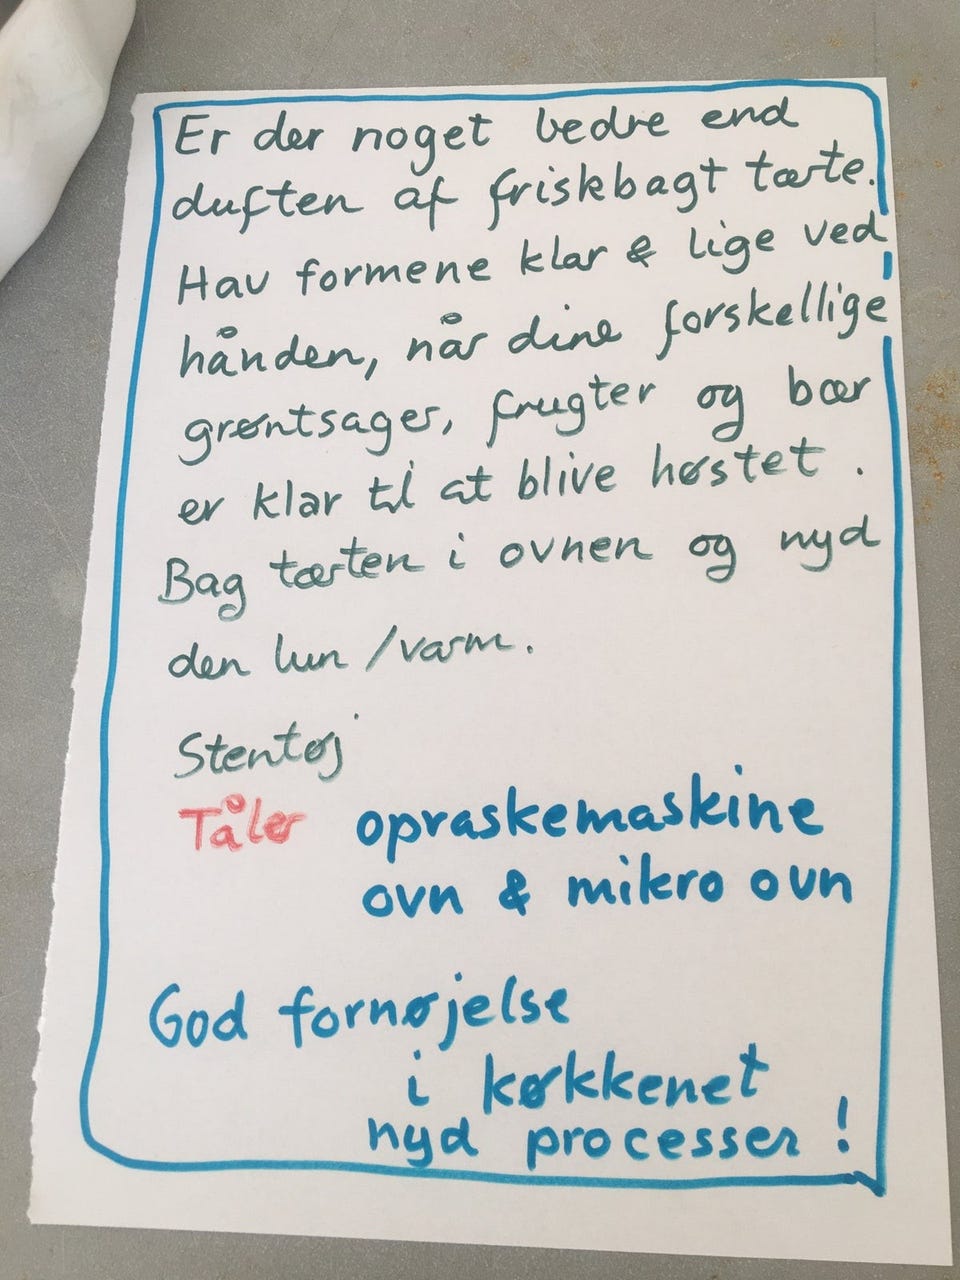 Er der noget bedre end
duften af friskbagt tærte.
Hav formene klar & lige ved
hånden, når dine forskellige
grøntsager, frugter og bær
er klar til at blive høstet.
Bag tærten i ovnen og nyd
den lun /varm.
Stentøj
Tåler opraskemaskine
ovn & mikro ovn
God fornøjelse
i køkkenet
nyd processer !